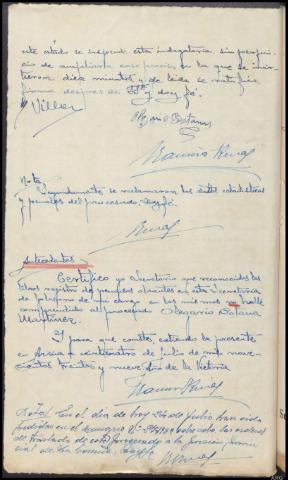 este estado se suspende esta indagatoria sin perjuicio
cio de ampliarla caso preciso, en la que se invir-
tieron diez minutos y de leida se ratifica
firma despues de SSª y doy fé.
Villar
Olegario Botana
Ramiro Rural
Nota
Seguidamente se reclamaron los antecedentes
y penales del procesado. Doy fé.
Rural
Antecedentes
Certifico yo el Secretario que reconocidos los
libros registro de penados obrantes en esta Secretaria
de Gobierno de mi cargo en los mismos no halle
comprendido al procesado Olegario Botana
Martinez.
Y para que conste, extiendo la presente
en Arzúa a veinticuatro de julio de mil nove-
cientos treinta y nueve. Año de la Victoria
Nota/ En el dia de hoy 24 de Julio han sido
de traslado de este procesado a la prision provin-
cial de La Coruña. Doy fé